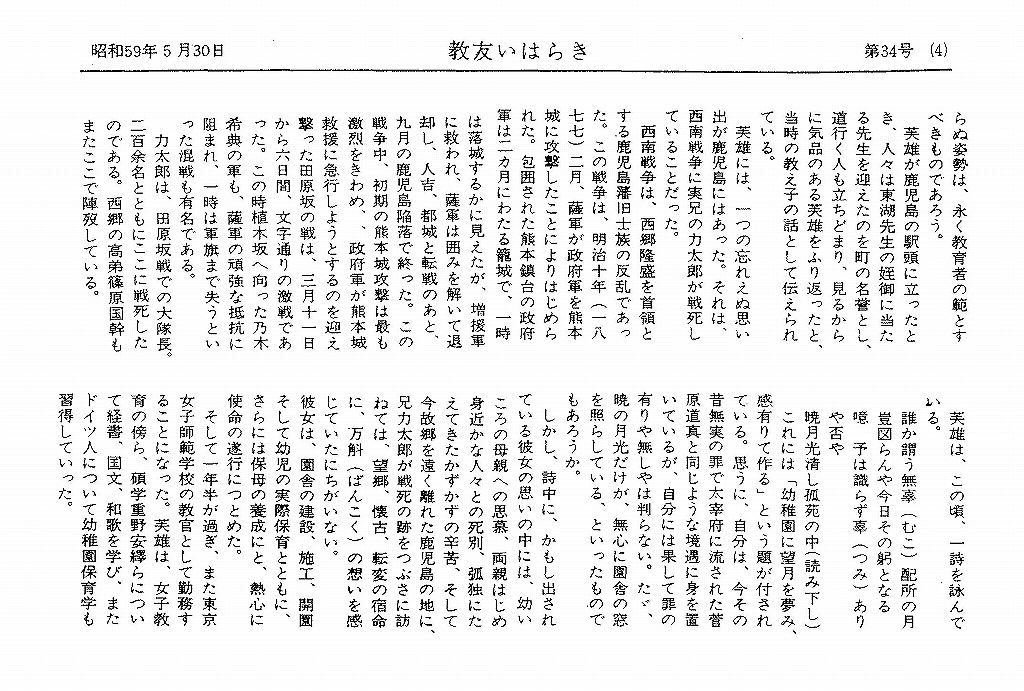 昭和59年5月30日
教友いはらき
第34号 (4)
らぬ姿勢は、永く教育者の範とす
べきものであろう。
芙雄が鹿児島の駅頭に立ったと
き、人々は東湖先生の姪御に当た
る先生を迎えたのを町の名誉とし、
道行く人も立ちどまり、見るから
に気品のある芙雄をふり返ったと、
当時の教え子の話として伝えられ
ている。
芙雄には、一つの忘れえぬ思い
出が鹿児島にはあった。それは、
西南戦争に実兄の力太郎が戦死し
ていることだった。
西南戦争は、西郷隆盛を首領と
する鹿児島藩旧士族の反乱であっ
た。この戦争は、明治十年(一八
七七)二月、薩軍が政府軍を熊本
城に攻撃したことによりはじめら
れた。包囲された熊本鎮台の政府
軍は二カ月にわたる籠城で、一時
は落城するかに見えたが、増援軍
に救われ、薩軍は囲みを解いて退
却し、人吉、都城と転戦のあと、
九月の鹿児島陥落で終った。この
戦争中、初期の熊本城攻撃は最も
激烈をきわめ、政府軍が熊本城
救援に急行しようとするのを迎え
撃った田原坂の戦は、三月十一日
から六日間、文字通りの激戦であ
った。この時植木坂へ向った乃木
希典の軍も、薩軍の頑強な抵抗に
阻まれ、一時は軍旗まで失うとい
った混戦も有名である。
力太郎は、田原坂戦での大隊長。
二百余名とともにここに戦死した
のである。西郷の高弟篠原国幹も
またここで陣歿している。
芙雄は、この頃、一詩を詠んで
いる。
誰か謂う無辜(むこ)配所の月
豈図らんや今日その躬となる
噫 予は識らず辜(つみ)あり
や否や
暁月光清し孤苑の中(読み下し)
これには「幼稚園に望月を夢み、
感有りて作る」という題が付され
ている。思うに、自分は、今その
昔無実の罪で太宰府に流された菅
原道真と同じような境遇に身を置
いているが、自分には果して罪の
有りや無しやは判らない。たゞ、
暁の月光だけが、無心に園舎の窓
を照らしている、といったもので
もあろうか。
しかし、詩中に、かもし出され
ている彼女の思いの中には、幼い
ころの母親への思慕、両親はじめ
身近かな人々との死別、孤独にた
えてきたかずかずの辛苦、そして
今故郷を遠く離れた鹿児島の地に、
兄力太郎が戦死の跡をつぶさに訪
ねては、望郷、懐古、転変の宿命
に、万斛(ばんこく)の想いを感
じていたにちがいない。
彼女は、園舎の建設、施工、開園
そして幼児の実際保育とともに、
さらには保母の養成にと、熱心に
使命の遂行につとめた。
そして一年半が過ぎ、また東京
女子師範学校の教官として勤務す
ることになった。芙雄は、女子教
育の傍ら、碩学重野安繹らについ
て経書、国文、和歌を学び、また
ドイツ人について幼稚園保育学も
習得していった。